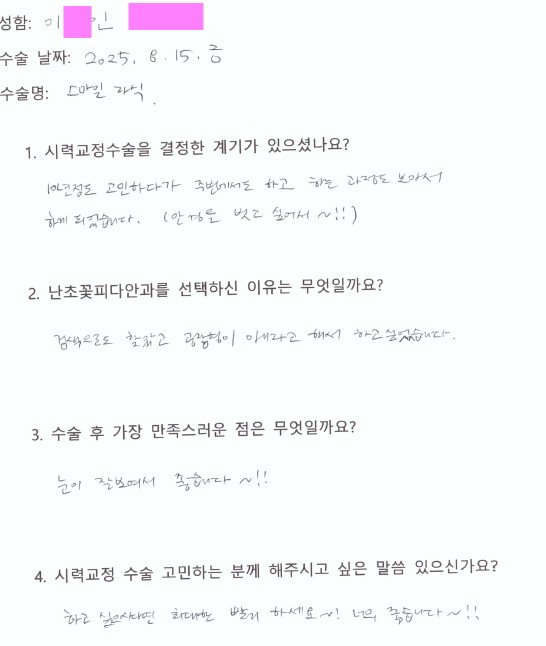 성함: 이 인
수술 날짜: 2025. 8. 15. 금
수술명: 스마일 라식.
1. 시력교정수술을 결정한 계기가 있으셨나요?
10년정도 고민하다가 주변에서도 하고 하는 과정도 보아서
하게 되었습니다. (안경을 벗고 싶어서 ~!!)
2. 난초꽃피다안과를 선택하신 이유는 무엇일까요?
검색으로도 찾았고 해서 하고싶었습니다.
3. 수술 후 가장 만족스러운 점은 무엇일까요?
눈이 잘보여서 좋습니다 ~!!
4. 시력교정 수술 고민하는 분께 해주시고 싶은 말씀 있으신가요?
하고 싶으시다면 최대한 빨리 하세요~! 너무 좋습니다~!!